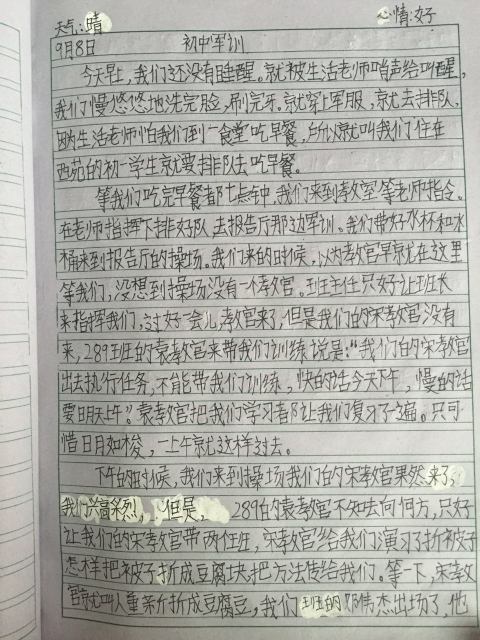 天气:晴 心情:好
9月8日 初中军训
今天早上,我们还没有睡醒。就被生活老师哨声给叫醒,
我们慢悠悠地洗完脸,刷完牙。就穿上军服,就去排队,
因为生活老师怕我们到一食堂吃早餐,所以就叫我们住在
西苑的初一学生就要排队去吃早餐。
等我们吃完早餐都七点钟,我们来到教室等老师指令。
在老师指挥下排好队,去报告厅那边军训。我们带好水杯和水
桶来到报告厅的操场。我们来的时候,以为教官早就在这里
等我们,没想到操场没有一个教官。班主任只好让班长
来指挥我们,过好一会儿,教官来了,但是我们的宋教官没有
来,289班的袁教官来带我们训练说是:“我们的宋教官
出去执行任务,不能带我们训练,快的话今天下午,慢的话
要明天上午?袁教官把我们学习都让我们复习了一遍。只可
惜日月如梭,一上午就这样过去。
下午的时候,我们来到操场我们的宋教官果然来了,
我们兴高采烈,但是,289的袁教官不知去向何方,只好
让我们的宋教官带两任班,宋教官给我们演习了折被子
怎样把被子折成豆腐块,把方法传给我们。等一下,宋教
官就叫人重新折成豆腐豆,我们班的邓伟杰出场了,他